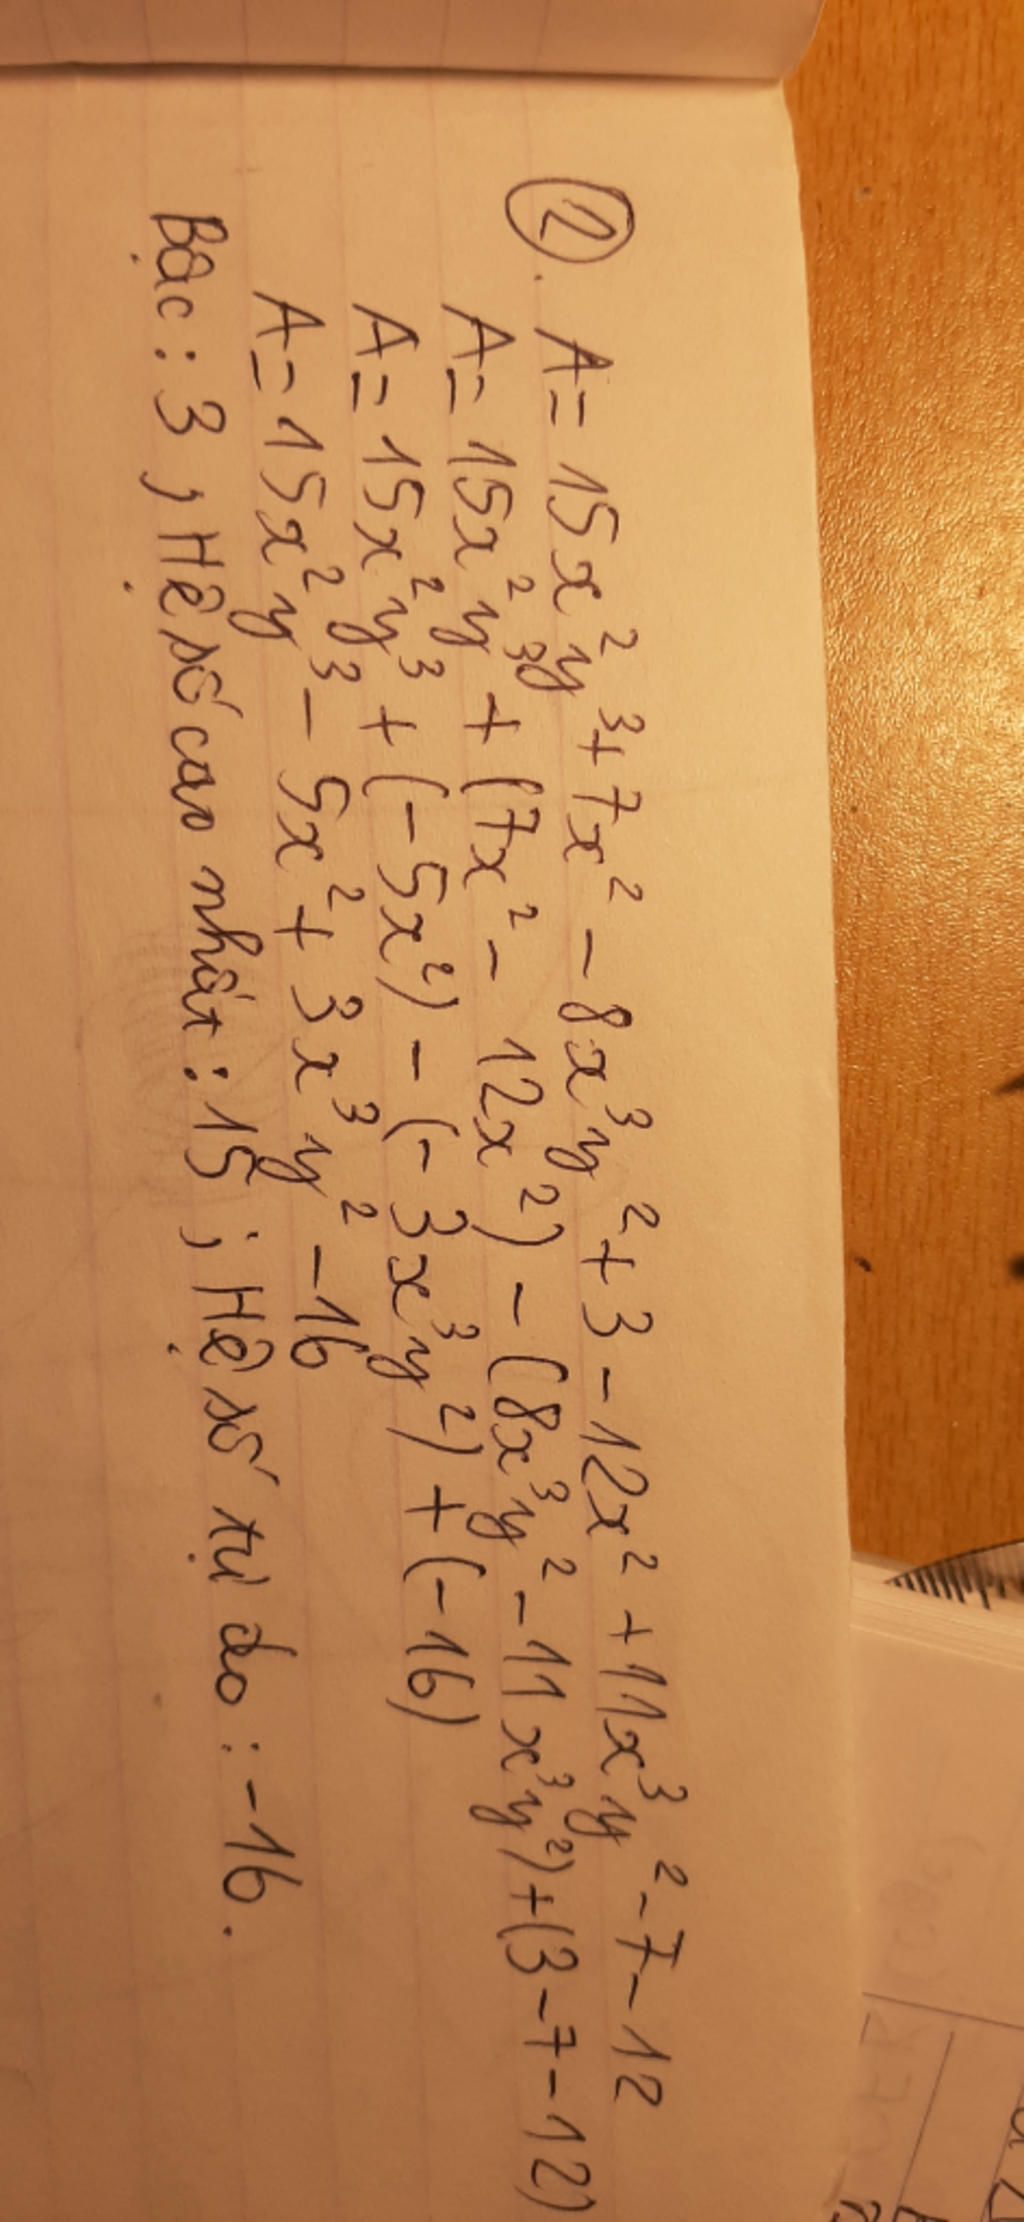 ① A = 15x²y³ + 7x² - 8x³y² + 3 - 12x² + 11x³y² - 7 - 12
A = 15x²y³ + (7x² - 12x²) - (8x³y² - 11x³y²) + (3 - 7 - 12)
A = 15x²y³ + (-5x²) - (-3x³y²) + (-16)
A = 15x²y³ - 5x² + 3x³y² - 16
Bậc : 3 ; Hệ số cao nhất : 15 ; Hệ số tự do : -16.